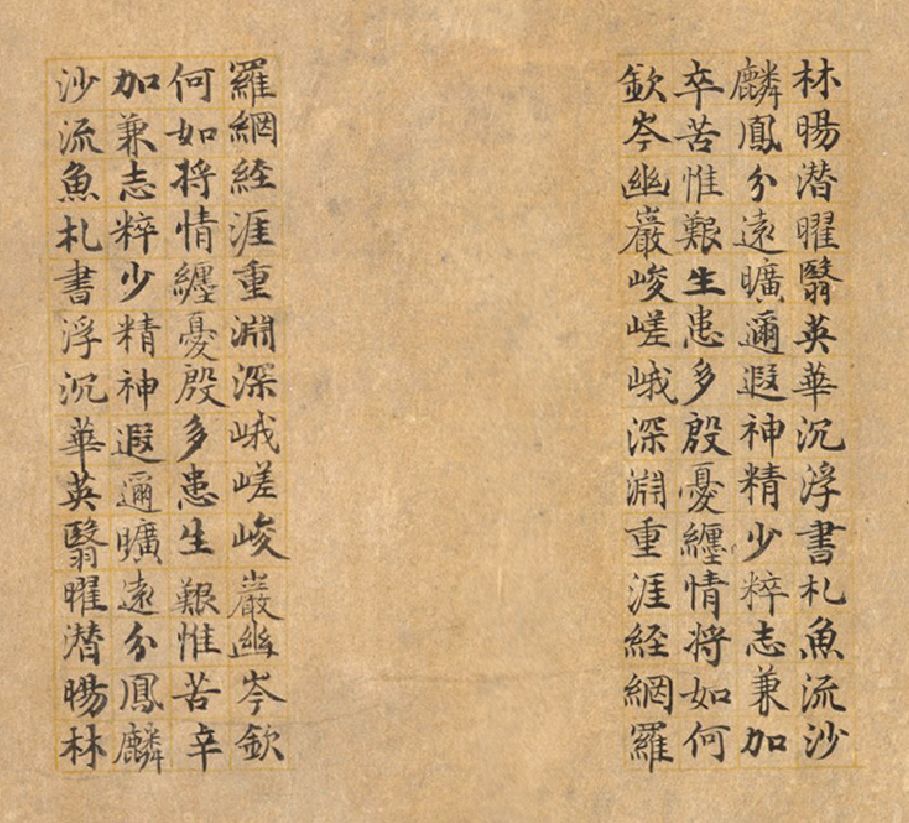 林暘潜曜翳英華沉浮書札魚流沙
麟鳳分遠曠邇遐神精少粹志兼加
卒苦惟艱生患多殷憂纏情将如何
欽岑幽巖峻嵯峨深淵重涯経網羅
羅網経涯重淵深峨嵯峻巖幽岑欽
何如将情纏憂殷多患生艱惟苦辛
加兼志粹少精神遐邇曠遠分鳳麟
沙流魚札書浮沉華英翳曜潜暘林